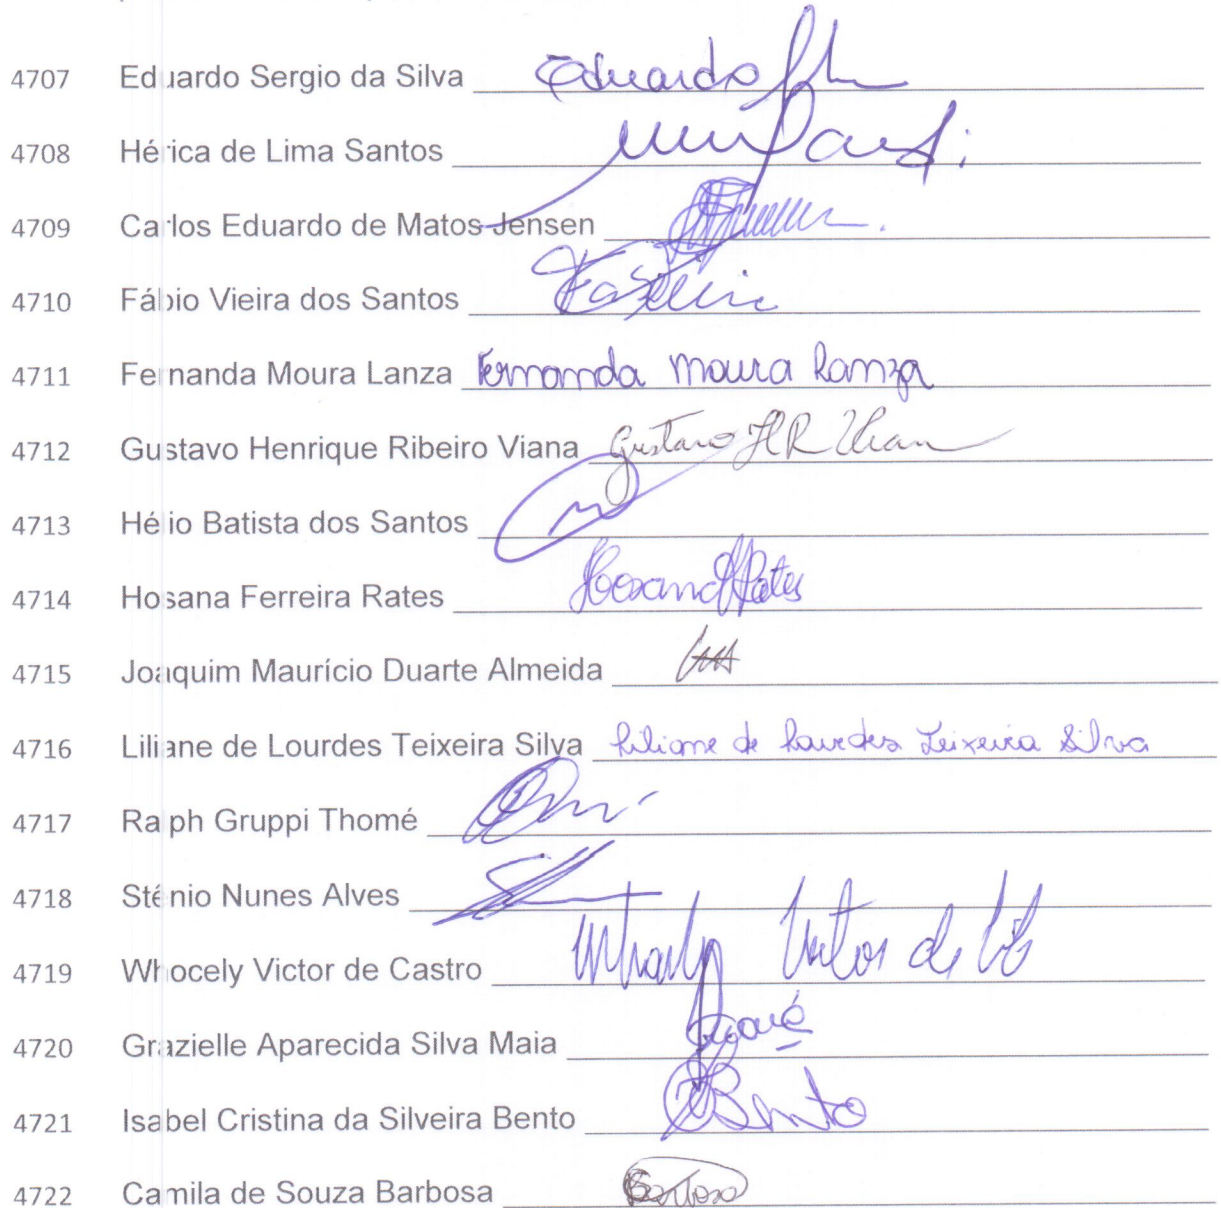 4707 Eduardo Sergio da Silva Eduardo
4708 Hérica de Lima Santos
4709 Carlos Eduardo de Matos Jensen
4710 Fábio Vieira dos Santos
4711 Fernanda Moura Lanza Fernanda Moura Lanza
4712 Gustavo Henrique Ribeiro Viana Gustavo HR Viana
4713 Hélio Batista dos Santos
4714 Hosana Ferreira Rates Hosana F Rates
4715 Joaquim Maurício Duarte Almeida
4716 Liliane de Lourdes Teixeira Silva Liliane de Lourdes Teixeira Silva
4717 Ralph Gruppi Thomé
4718 Stênio Nunes Alves
4719 Whocely Victor de Castro Victor de
4720 Grazielle Aparecida Silva Maia
4721 Isabel Cristina da Silveira Bento Bento
4722 Camila de Souza Barbosa Barbosa